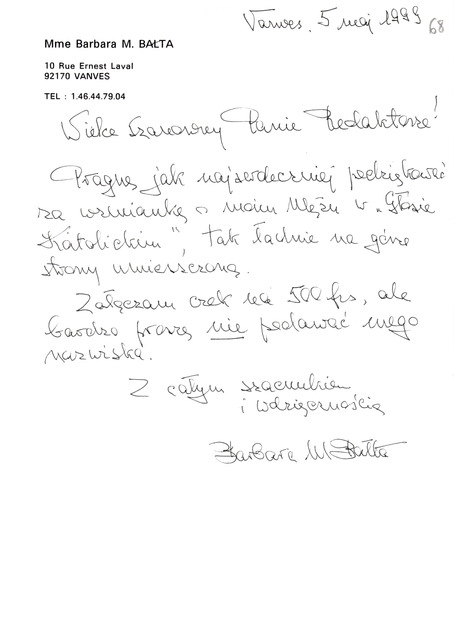 Vanves, 5 maj 1999
68
Mme Barbara M. BAŁTA
10 Rue Ernest Laval
92170 VANVES
TEL : 1.46.44.79.04
Wielce Szanowny Panie Redaktorze!
Pragnę jak najserdeczniej podziękować
za wzmiankę o moim Mężu w „Głosie
Katolickim", tak ładnie na górze
strony umieszczoną.
Załączam czek na 500 frs, ale
bardzo proszę nie podawać mego
nazwiska.
Z całym szacunkiem
i wdzięcznością
Barbara M Bałta